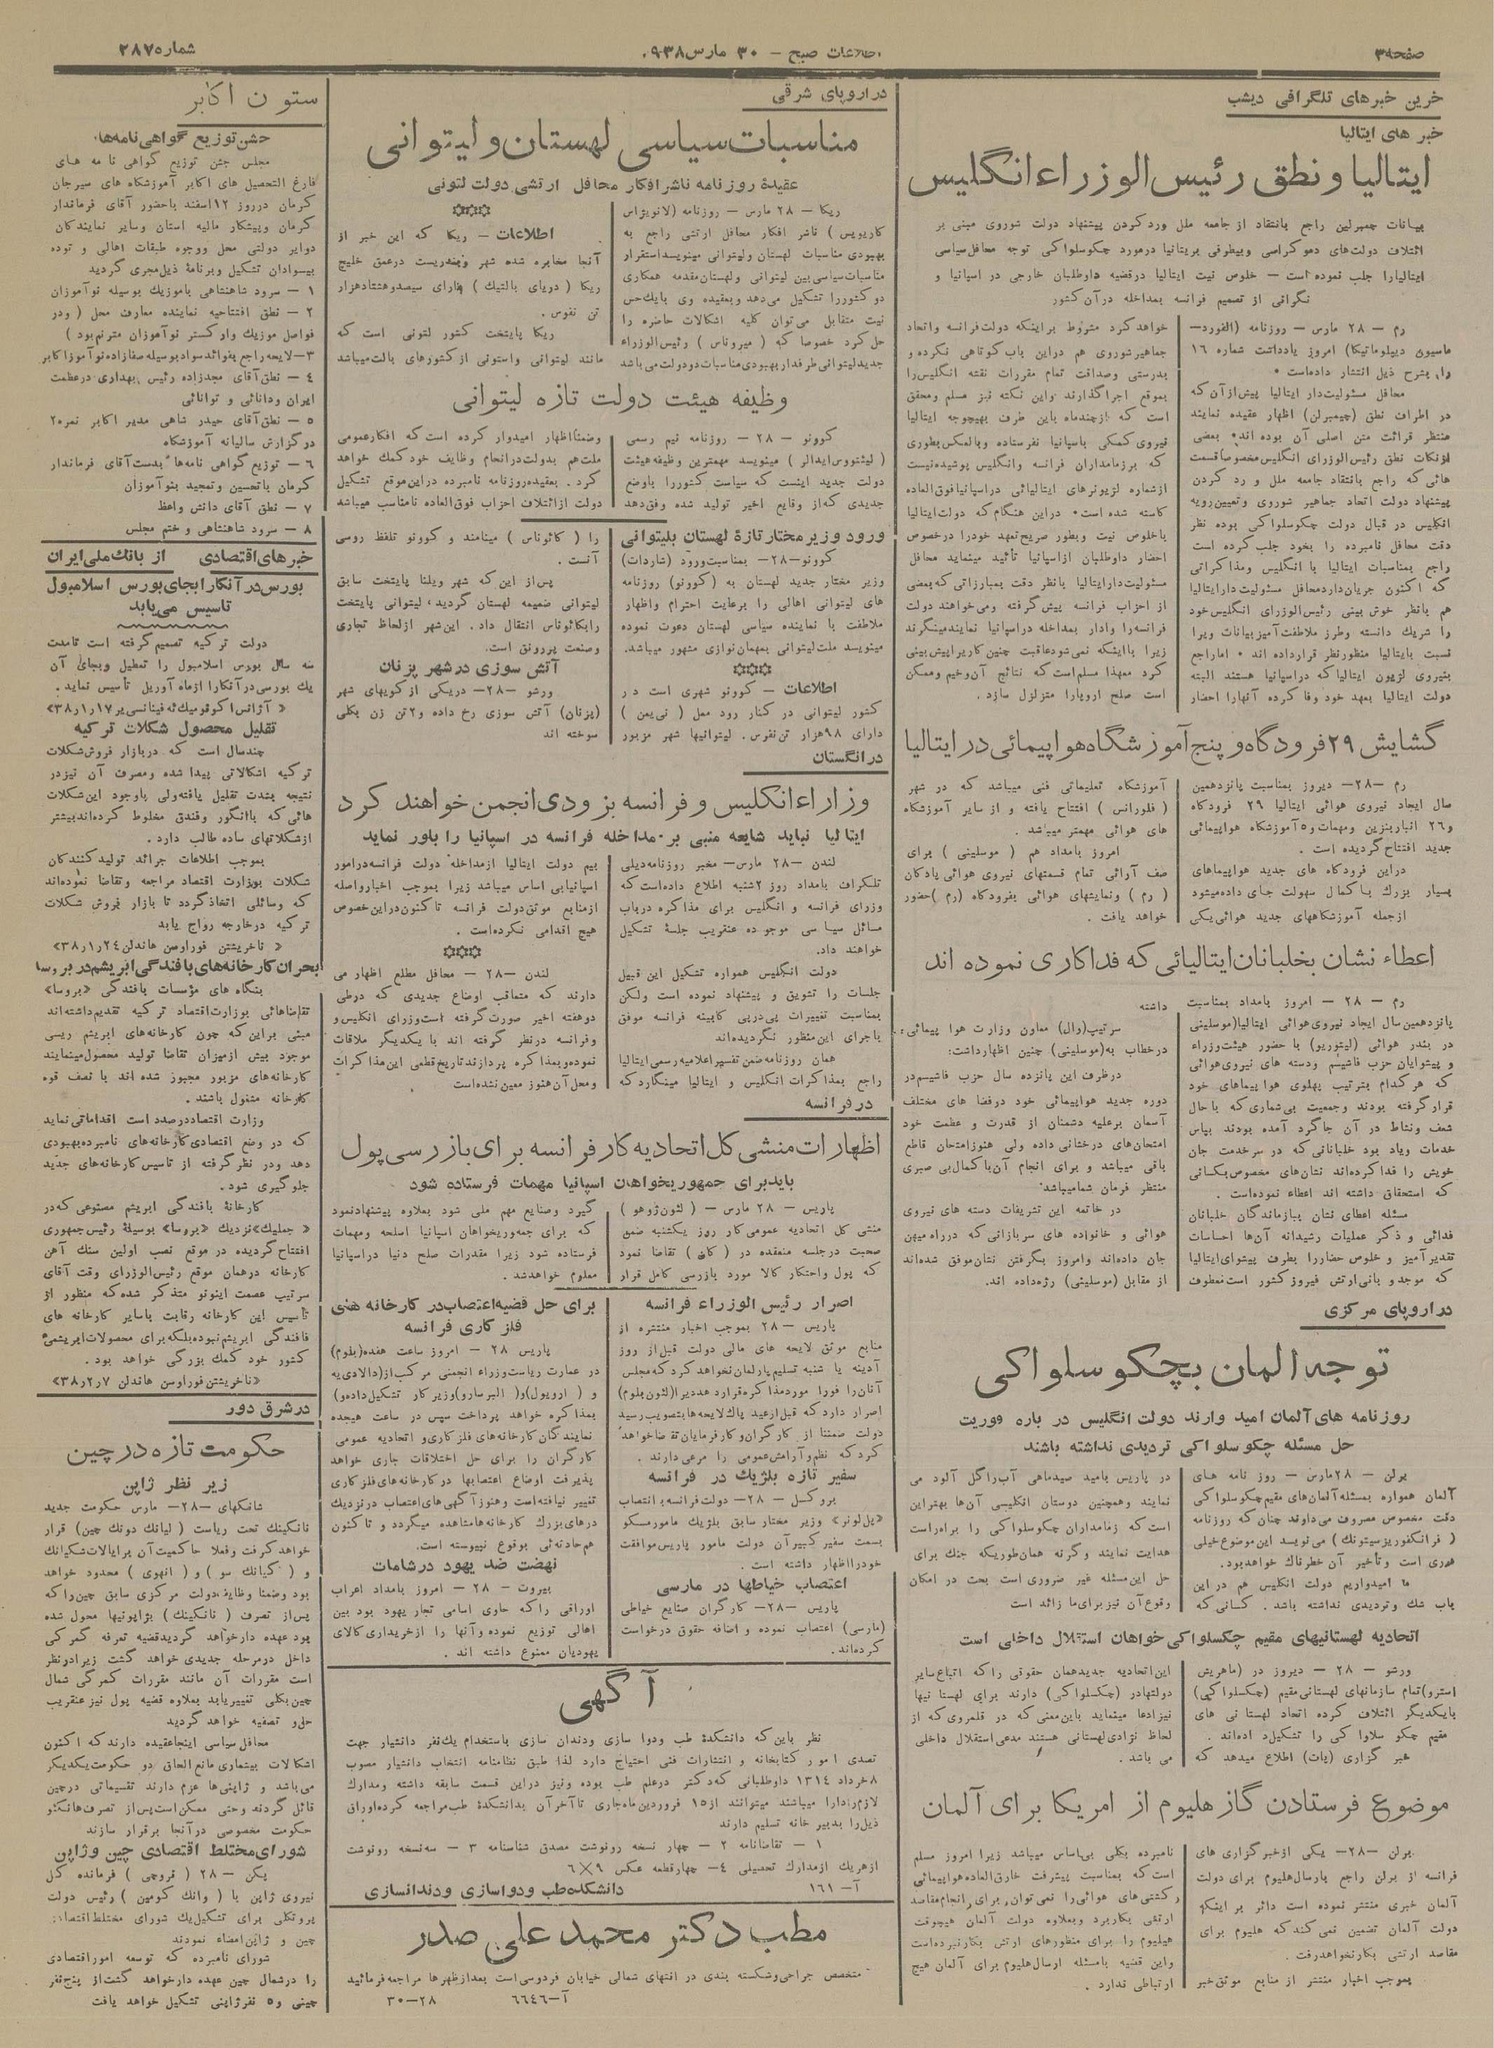 صفحه ۳
اطلاعات صبح — ۳۰ مارس ۹۳۸.
شماره ۲۸۷۵
خرین خبرهای تلگرافی دیشب
خبر های ایتالیا
ایتالیا و نطق رئیس الوزراء انگلیس
بیانات چمبرلین راجع بانتقاد از جامعه ملل ورد کردن پیشنهاد دولت شوروی مبنی بر
ائتلاف دولت‌های دموکراسی وبیطرفی بریتانیا درمورد چکوسلواکی توجه محافل سیاسی
ایتالیارا جلب نموده است — خلوص نیت ایتالیا درقضیه داوطلبان خارجی در اسپانیا و
نگرانی از تصمیم فرانسه بمداخله درآن کشور
رم — ۲۸ مارس — روزنامه (الفورد—
ماسیون دیپلوماتیکا) امروز یادداشت شماره ۱۶
را، بشرح ذیل انتشار داده‌است .
محافل مسئولیت‌دار ایتالیا پیش‌ازآن که
در اطراف نطق (چیمبرلن) اظهار عقیده نمایند
منتظر قرائت متن اصلی آن بوده‌اند. بعضی
ازنکات نطق رئیس‌الوزرای انگلیس مخصوصاقسمت
هائی که راجع بانتقاد جامعه ملل و رد کردن
پیشنهاد دولت اتحاد جماهیر شوروی وتعیین‌رویه
انگلیس در قبال دولت چکوسلواکی بوده نظر
دقت محافل نامبرده را بخود جلب کرده است
راجع بمناسبات ایتالیا با انگلیس ومذاکراتی
که اکنون جریان‌داردمحافل مسئولیت دارایتالیا
هم بانظر خوش بینی رئیس‌الوزرای انگلیس‌خود
را شریك دانسته وطرز ملاطفت آمیزبیانات ویرا
نسبت بایتالیا منظورنظر قرارداده اند . اماراجع
بنیروی لژیون ایتالیا‌که دراسپانیا هستند البته
دولت ایتالیا بعهد خود وفا کرده آنهارا احضار
خواهدکرد مشروط براینکه دولت‌فرانسه واتحاد
جماهیرشوروی هم دراین باب کوتاهی نکرده و
بدرستی وصداقت تمام مقررات نقشه انگلیس‌را
بموقع اجراگذارند .واین نکته نیز مسلم ومحقق
است که ازچندماه باین طرف بهیچوجه ایتالیا
نیروی کمکی باسپانیا نفرستاده وبالعکس‌بطوری
که برزمامداران فرانسه وانگلیس پوشیده‌نیست
ازشماره لژیونرهای ایتالیائی دراسپانیافوق‌العاده
کاسته شده است. دراین هنگام‌که دولت‌ایتالیا
باخلوص نیت وبطور صریح‌تعهد خودرا درخصوص
احضار داوطلبان ازاسپانیا تأئید مینماید محافل
مسئولیت‌دارایتالیا بانظر دقت بمبارزاتی‌که‌بعضی
از احزاب فرانسه پیش‌گرفته ومی‌خواهند دولت
فرانسه‌را وادار بمداخله دراسپانیا نمایندمینگرند
زیرا بااینکه نمی‌شودعاقبت چنین کاررا‌پیش‌بینی
کرد معهذا مسلم‌است‌که نتایج آن‌وخیم وممکن
است صلح اروپارا متزلزل سازد.
گشایش ۲۹ فرودگاه و پنج آموزشگاه هواپیمائی در ایتالیا
رم —۲۸— دیروز بمناسبت پانزدهمین
سال ایجاد نیروی هوائی ایتالیا ۲۹ فرودگاه
و۲۶ انبار‌بنزین ومهمات و۵ آموزشگاه هواپیمائی
جدید افتتاح‌گردیده است .
دراین فرودگاه های جدید هواپیماهای
بسیار بزرك باکمال سهولت جای داده‌میشود
ازجمله آموزشگاههای جدید هوائی‌یکی
آموزشگاه تعلیماتی فنی میباشد که در شهر
( فلورانس ) افتتاح یافته و از سایر آموزشگاه
های هوائی مهمتر میباشد .
امروز بامداد هم ( موسلینی ) برای
صف آرائی تمام قسمتهای نیروی هوائی پادکان
( رم ) ونمایشهای هوائی بفرودگاه (رم )حضور
خواهد یافت .
اعطاء نشان بخلبانان ایتالیائی که فداکاری نموده اند
رم — ۲۸ — امروز بامداد بمناسبت
پانزدهمین‌سال ایجاد نیروی‌هوائی ایتالیا(موسلینی
در بندر هوائی (لیتوریو) با حضور هیئت‌وزراء
و پیشوایان حزب فاشیسم ودسته های نیروی‌هوائی
که هرکدام بترتیب پهلوی هواپیماهای خود
قرارگرفته بودند وجمعیت بی‌شماری که باحال
شعف ونشاط در آن جاگرد آمده بودند بپاس
خدمات ویاد بود خلبانانی که در‌سرخدمت جان
خویش را فداکرده‌اند نشان‌های مخصوص‌بکسانی
که استحقاق داشته اند اعطاء نموده‌است .
مسئله اعطای نشان ببازماندگان خلبانان
فدائی و ذکر عملیات رشیدانه آن‌ها احساسات
تقدیرآمیز و خلوص حضاررا بطرف پیشوای‌ایتالیا
که موجد و بانی‌ارتش فیروز کشور است‌معطوف
داشته
سرتیپ(وال) معاون وزارت هوا پیمائی
درخطاب به(موسلینی) چنین اظهارداشت:
درظرف این پانزده سال حزب فاشیسم‌در
دوره جدید هواپیمائی خود درفضا های مختلف
آسمان برعلیه دشمنان از قدرت و عظمت خود
امتحان‌های درخشانی داده ولی هنوزامتحان قاطع
باقی میباشد و برای انجام آن‌باکمال‌بی صبری
منتظر فرمان شمامیباشد
در خاتمه این تشریفات دسته های نیروی
هوائی و خانواده های سربازانی که درراه‌میهن
جان داده‌اند وامروز بگرفتن نشان‌موفق شده‌اند
از مقابل (موسلینی) رژه‌داده اند.
در اروپای مرکزی
توجه المان بچکوسلواکی
روزنامه های آلمان امید وارند دولت انگلیس در باره فوریت
حل مسئله چکوسلواکی تردیدی نداشته باشند
برلن — ۲۸مارس — روز نامه های
آلمان همواره بمسئله آلمان‌های مقیم چکوسلواکی
دقت مخصوص مصروف می‌دارند چنان که روزنامه
( فرانکفورزیستونك ) می‌نویسد این موضوع‌خیلی
فوری است وتأخیر آن خطرناك خواهدبود.
ما امیدواریم دولت انگلیس هم در این
باب شك وتردیدی نداشته باشد . کسانی که
در پاریس بامید صیدماهی آب‌راگل آلود می
نمایند وهمچنین دوستان انگلیسی آن‌ها بهتراین
است‌که زمامداران چکوسلواکی را براه‌راست
هدایت نمایند وگرنه همان‌طوریکه جنك برای
حل این‌مسئله غیر ضروری است بحث در امکان
وقوع‌آن نیز برای‌ما زائد است
اتحادیه لهستانیهای مقیم چکسلواکی خواهان استقلال داخلی است
ورشو — ۲۸ — دیروز در (ماهریش
استرو)تمام سازمانهای لهستانی‌مقیم (چکسلواکی)
بایکدیگر ائتلاف کرده اتحاد لهستا نی های
مقیم چکو سلاوا کی را تشکیل‌د اده‌اند .
خبر گزاری (پات) اطلاع میدهد که
این‌اتحادیه جدیدهمان حقوقی راکه اتباع‌سایر
دولتهادر (چکسلواکی) دارند برای لهستا نیها
نیزادعا مینماید باین‌معنی‌که در قلمروی که از
لحاظ نژادی‌لهستانی هستند مدعی‌استقلال داخلی
می باشد .
موضوع فرستادن گاز هلیوم از امریکا برای آلمان
برلن —۲۸— یکی ازخبرگزاری های
فرانسه از برلن راجع بارسال‌هلیوم برای دولت
آلمان خبری منتشر نموده است دائر بر اینکه
دولت آلمان تضمین نمی‌کند‌که هلیوم برای
مقاصد ارتشی بکارنخواهدرفت.
بموجب اخبار منتشر از منابع موثق‌خبر
نامبرده بکلی بی‌اساس میباشد زیرا امروز مسلم
است‌که بمناسبت پیشرفت خارق‌العاده‌هواپیمائی
کشتی‌های هوائی‌را نمی‌توان، برای انجام‌مقاصد
ارتشی بکاربرد وبعلاوه دولت آلمان هیچوقت
هیلیوم را برای منظورهای ارتش بکارنبرده‌است
واین قضیه بامسئله ارسال‌هلیوم برای آلمان هیچ
ارتباطی ندارد .
در اروپای شرقی
مناسبات سیاسی لهستان و لیتوانی
عقیدهٔ روزنامه ناشرافکار محافل ارتشی دولت لتونی
ریکا — ۲۸ مارس — روزنامه (لانویژاس
کارپویس ) ناشر افکار محافل ارتشی راجع به
بهبودی مناسبات لهستان ولیتوانی مینویسداستقرار
مناسبات‌سیاسی‌بین لیتوانی ولهستان‌مقدمه همکاری
دوکشوررا تشکیل می‌دهد وبعقیده وی بایك‌حس
نیت متقابل می‌توان کلیه اشکالات حاضره را
حل‌کرد خصوصا‌که ( میروناس ) رئیس‌الوزراء
جدیدلیتوانی‌طرفدار‌بهبودی‌مناسبات دودولت‌می‌باشد
اطلاعات — ریکا که این خبر از
آنجا مخابره شده شهر وبندریست درعمق خلیج
ریکا ( دریای بالتیك ) دارای سیصدوهشتادهزار
تن نفوس .
ریکا پایتخت کشور لتونی است که
مانند لیتوانی واستونی ازکشورهای بالت‌میباشد
وظیفه هیئت دولت تازه لیتوانی
کوونو —۲۸ — روزنامه نیم رسمی
( لیئتووس‌ایدالر ) مینویسد مهمترین وظیفه‌هیئت
دولت جدید اینست که سیاست کشوررا باوضع
جدیدی که از وقایع اخیر تولید شده وفق‌دهد
وضمنأاظهار امیدوار کرده است‌که افکارعمومی
ملت‌هم بدولت‌درانجام وظایف خودکمك خواهد
کرد . بعقیده‌روزنامه نامبرده دراین‌موقع تشکیل
دولت ازائتلاف احزاب فوق‌العاده نامناسب میباشد
ورود وزیر مختار تازهٔ لهستان بلیتوانی
کوونو—۲۸— بمناسبت‌ورود (شاردات)
وزیر مختار جدید لهستان به (کوونو) روزنامه
های لیتوانی اهالی را برعایت احترام واظهار
ملاطفت با نماینده سیاسی لهستان دعوت نموده
مینویسد ملت‌لیتوانی بمهمان‌نوازی مشهور میباشد.
اطلاعات — کوونو شهری است د ر
کشور لیتوانی در کنار رود ممل ( نی‌یمن )
دارای ۹۸هزار تن‌نفوس. لیتوانیها شهر مزبور
را ( کائوناس ) مینامند و کوونو تلفظ روسی
آنست .
پس‌از این که شهر ویلنا پایتخت سابق
لیتوانی ضمیمه لهستان گردید، لیتوانی پایتخت
رابکائوناس انتقال داد. این‌شهر ازلحاظ تجاری
وصنعت پررونق است.
آتش سوزی در شهر پزنان
ورشو —۲۸— دریکی ازکویهای شهر
(پزنان) آتش سوزی رخ داده و۲تن زن بکلی
سوخته اند
در انگستان
وزراء انگلیس و فرانسه بزودی انجمن خواهند کرد
ایتالیا نباید شایعه منبی بر مداخله فرانسه در اسپانیا را باور نماید
لندن —۲۸ مارس— مخبر روزنامه‌دیلی
تلکراف بامداد روز ۲شنبه اطلاع داده‌است‌که
وزرای فرانسه و انگلیس برای مذاکره درباب
مسائل سیا سی موجو ده عنقریب جلسهٔ تشکیل
خواهند داد.
دولت انگلیس همواره تشکیل این قبیل
جلسات را تشویق و پیشنهاد نموده است ولکن
بمناسبت تغییرات پی‌درپی کابینه فرانسه موفق
باجرای این‌منظور نگردیده‌اند
همان روزنامه‌ضمن‌تفسیراعلامیه‌رسمی‌ایتالیا
راجع بمذاکرات انگلیس و ایتالیا مینگارد‌که
بیم دولت ایتالیا ازمداخله دولت فرانسه‌درامور
اسپانیابی اساس میباشد زیرا بموجب اخبارواصله
ازمنابع موثق‌دولت فرانسه تاکنون‌دراین‌خصوص
هیچ اقدامی نکرده‌است .
لندن —۲۸ — محافل مطلع اظهار می
دارند که متعاقب اوضاع جدیدی که درطی
دوهفته اخیر صورت‌گرفته است‌وزرای انگلیس‌و
وفرانسه درنظر گرفته اند با یکدیگر ملاقات
نموده‌و‌بمذاکره پردازند‌تاریخ‌قطعی این‌مذا کرات
ومحل‌آن هنوز معین‌نشده‌است
در فرانسه
اظهارات منشی کل اتحادیه کار فرانسه برای بازرسی پول
باید برای جمهوریخواهان اسپانیا مهمات فرستاده شود
پاریس — ۲۸ مارس — ( لئون‌ژوهو )
منشی کل اتحادیه عمومی‌کار روز یکشنبه ضمن
صحبت درجلسه منعقده در ( کان) تقاضا نمود
که پول واحتکار کالا مورد بازرسی کامل قرار
گیرد وصنایع مهم ملی شود بعلاوه پیشنهادنمود
که برای جمهوریخواهان اسپانیا اسلحه ومهمات
فرستاده شود زیرا مقدرات صلح دنیا دراسپانیا
معلوم خواهدشد.
اصرار رئیس الوزراء فرانسه
پاریس —۲۸ بموجب اخبار منتشره از
منابع موثق لایحه های مالی دولت قبل‌از روز
آدینه یا شنبه تسلیم‌پارلمان نخواهدگردید‌که‌مجلس
آنان‌را فورا موردمذاکره‌قراردهدزیرا(لئون‌بلوم)
اصرار داردکه قبل‌ازعید پاك لایحه‌ها بتصویب‌رسید
دولت ضمنتا از کارگران‌وکارفرمایان‌تقاضاخواهد
کردکه نظم‌وآرامش‌عمومی را مرعی‌دارند .
سفیر تازه بلژیك در فرانسه
بروکسل —۲۸— دولت‌فرانسه با انتصاب
«پل‌لوتر» وزیر مختار سابق بلژیك مامور‌مسکو
بسمت سفیرکبیرآن دولت مامور پاریس‌موافقت
خودرااظهار داشته است .
اعتصاب خیاطها در مارسی
پاریس —۲۸— کارگران صنایع خیاطی
(مارسی) اعتصاب نموده و اضافه حقوق درخواست
کرده‌اند.
برای حل قضیه اعتصاب در کارخانه های
فلز کاری فرانسه
پاریس ۲۸ — امروز ساعت هفده(بلوم)
در عمارت ریاست‌وزراء انجمنی مرکب‌از(دالادی‌یه
و ( اریول)و( البرسارو)وزیر کار تشکیل‌داده‌و)
بمذاکره خواهد پرداخت سپس در ساعت هیجده
نمایندگان‌کارخانه‌های فلزکاری‌و اتحادیه عمومی
کارگران را برای حل اختلافات جاری خواهد
پذیرفت اوضاع اعتصابها درکارخانه‌های‌فلزکاری
تغییر نیافته‌است وهنوزآگهی‌های‌اعتصاب درنزدیك
درهای‌بزرك کارخانه‌هامشاهده میگردد و تاکنون
هم‌حادثه‌ئی بوقوع نپیوسته است.
نهضت ضد یهود در شامات
بیروت — ۲۸ — امروز بامداد اعراب
اوراقی راکه حاوی اسامی تجار یهود بود بین
اهالی توزیع نموده وآنها را ازخریداری‌کالای
یهودیان ممنوع داشته اند .
آگهی
نظر باین‌که دانشکدهٔ طب ودوا سازی ودندان سازی باستخدام یك‌نفر دانشیار جهت
تصدی ا مور کتابخانه و انتشارات فنی احتیاج دارد لذا طبق نظامنامه انتخاب دانشیار مصوب
۸خرداد ۱۳۱۴ داوطلبانی که‌دکتر درعلم طب بوده ونیز دراین قسمت سابقه داشته ومدارك
لازم‌رادارا میباشند میتوانند از۱۵ فروردین‌ماه‌جاری تاآخرآن بدانشکدهٔ طب‌مراجعه کرده‌اوراق
ذیل‌را بدبیر خانه تسلیم دارند
۱ — تقاضانامه ۲ — چهار نسخه رونوشت مصدق شناسنامه ۳ — سه‌نسخه رونوشت
ازهریك ازمدارك تحصیلی ۴— چهارقطعه عکس ۹×۶
آ— ۱۶۱
دانشکده طب و دواسازی و دندانسازی
مطب دکتر محمد علی صدر
متخصص جراحی‌وشکسته بندی در انتهای شمالی خیابان فردوسی‌است بعدازظهرها مراجعه‌فرمائید
آ—۶۶۴۶
۲۸—۳۰
ستون اکابر
جشن توزیع گواهی نامه‌ها
مجلس جشن توزیع گواهی نا مه های
فارغ التحصیل های اکابر آموزشگاه های سیرجان
کرمان درروز ۱۲اسفند باحضور آقای فرماندار
کرمان وپیشکار مالیه استان وسایر نمایندکان
دوایر دولتی محل ووجوه طبقات اهالی و توده
بیسوادان تشکیل وبرنامهٔ ذیل‌مجری گردید
۱ — سرود شاهنشاهی باموزیك بوسیله نوآموزان
۲ — نطق افتتاحیه نماینده معارف محل ( ودر
فواصل موزیك وارکستر نوآموزان مترنم‌بود )
۳—لایحه‌راجع بفوائدسواد‌بوسیله‌صفازاده‌نوآموزاکابر
۴ — نطق‌آقای مجدزاده رئیس بهداری درعظمت
ایران ودانائی و توانائی
۵ — نطق‌آقای حیدر شاهی مدیر اکابر نمره۲
و‌گزارش سالیانه آموزشگاه
۶ — توزیع گواهی نامه‌ها بدست‌آقای فرماندار
کرمان باتحسین وتمجید بنوآموزان
۷ — نطق آقای دانش واعظ
۸ — سرود شاهنشاهی و ختم مجلس
خبرهای اقتصادی
از بانك ملی ایران
بورس در آنکارا بجای بورس اسلامبول
تاسیس می‌یابد
دولت ترکیه تصمیم گرفته است تامدت
سه سال بورس اسلامبول را تعطیل وبجای آن
یك بورسی درآنکارا ازماه آوریل تأسیس نماید.
« آژانس اکونومیك ئه فینانسی‌یر ۱۷ر۱ر۳۸»
تقلیل محصول شکلات ترکیه
چندسال است که دربازار فروش‌شکلات
ترکیه اشکالاتی پیدا شده ومصرف آن نیزدر
نتیجه بشدت تقلیل یافته‌ولی باوجود این‌شکلات
هائی‌که باانگور وفندق مخلوط کرده‌اند‌بیشتر
ازشکلاتهای ساده طالب دارد .
بموجب اطلاعات جرائد تولید‌کنندکان
شکلات بوزارت اقتصاد مراجعه وتقاضا نموده‌اند
که وسائلی اتخاذگردد تا بازار فروش شکلات
ترکیه درخارجه رواج یابد
« ناخریشتن فوراوسن هاندلن ۲۴ر۱ر۳۸»
بحران کارخانه‌های بافندگی ابریشم در بروسا
بنگاه های مؤسسات بافندگی «بروسا»
تقاضاهائی بوزارت‌اقتصاد ترکیه تقدیم‌داشته‌اند
مبنی براین‌که چون کارخانه‌های ابریشم ریسی
موجود بیش ازمیزان تقاضا تولید محصول‌مینمایند
کارخانه‌های مزبور مجبور شده اند با نصف قوه
کارخانه مشغول باشند.
وزارت اقتصاد‌درصدد است اقداماتی نماید
که در وضع اقتصادی‌کارخانه‌های نامبرده‌بهبودی
دهد ودر نظرگرفته از تاسیس کارخانه‌های جدید
جلوگیری شود.
کارخانهٔ بافندگی ابریشم مصنوعی که‌در
« جملیك»نزدیك «بروسا» بوسیلهٔ رئیس‌جمهوری
افتتاح‌گردیده در‌موقع نصب اولین سنك آهن
کارخانه درهمان موقع رئیس‌الوزرای وقت آقای
سرتیپ عصمت اینونو متذکر شده‌که منظور از
تأسیس این کارخانه رقابت باسایر کارخانه های
بافندگی ابریشم‌نبوده‌بلکه‌برای محصولات‌ابریشمی
کشور خود کمك بزرگی خواهد بود.
«ناخریشتن فوراوسن هاندلن ۷ر۲ر۳۸»
در شرق دور
حکومت تازه در چین
زیر نظر ژاپن
شانگهای —۲۸— مارس حکومت جدید
نانکینك تحت ریاست ( لیانك دونك چین) قرار
خواهدگرفت وفعلا حاکمیت‌آن برایالات‌شکیانك
و ( کیانك سو ) و( انهوی ) محدود خواهد
بود وضمنا وظایف‌دولت مرکزی سابق چین‌راکه
پس‌از تصرف ( نانکینك ) بژاپونیها محول شده
بود عهده دارخواهد گردیدقضیه تعرفه گمرکی
داخل دومرحله جدیدی خواهد گشت زیرادرنظر
است مقررات آن مانند مقررات گمرکی شمال
چین‌بکلی تغییریابد بعلاوه قضیه پول نیز‌عنقریب
حل‌و تصفیه خواهد گردید
محافل‌سیاسی اینجاعقیده دارندکه اکنون
اشکالات بیشماری مانع‌الحاق دو حکومت‌بکدیکر
می‌باشد و ژاپنی‌ها عزم دارند تقسیماتی درچین
قائل گردند وحتی ممکن‌است‌پس‌از تصرف‌هانکئو
حکومت مخصوصی درآنجا برقرار سازند
شورای مختلط اقتصادی چین و ژاپن
پکن —۲۸ ( ترومچی ) فرمانده کل
نیروی ژاپن با ( وانك کومین ) رئیس دولت
پروتکلی برای تشکیل‌یك شورای مختلط‌اقتصادی
چین و ژاپن‌امضاء نمودند
شورای نامبرده که توسعه امور‌اقتصادی
را درشمال چین عهده دارخواهد گشت‌از پنج‌نفر
چینی و۵ نفرژاپنی تشکیل خواهد یافت